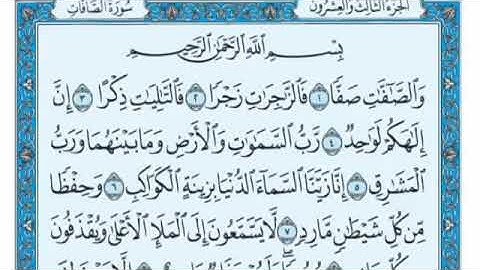 الجزء الثالث والعشرون
سورة الصافات
بِسْمِ ٱللَّهِ ٱلرَّحْمَٰنِ ٱلرَّحِيمِ
وَٱلصَّٰٓفَّٰتِ صَفًّا ١ فَٱلزَّٰجِرَٰتِ زَجْرًا ٢ فَٱلتَّٰلِيَٰتِ ذِكْرًا ٣ إِنَّ
إِلَٰهَكُمْ لَوَٰحِدٌ ٤ رَّبُّ ٱلسَّمَٰوَٰتِ وَٱلْأَرْضِ وَمَا بَيْنَهُمَا وَرَبُّ
ٱلْمَشَٰرِقِ ٥ إِنَّا زَيَّنَّا ٱلسَّمَآءَ ٱلدُّنْيَا بِزِينَةٍ ٱلْكَوَاكِبِ ٦ وَحِفْظًا
مِّن كُلِّ شَيْطَٰنٍ مَّارِدٍ ٧ لَّا يَسَّمَّعُونَ إِلَى ٱلْمَلَإِ ٱلْأَعْلَىٰ وَيُقْذَفُونَ